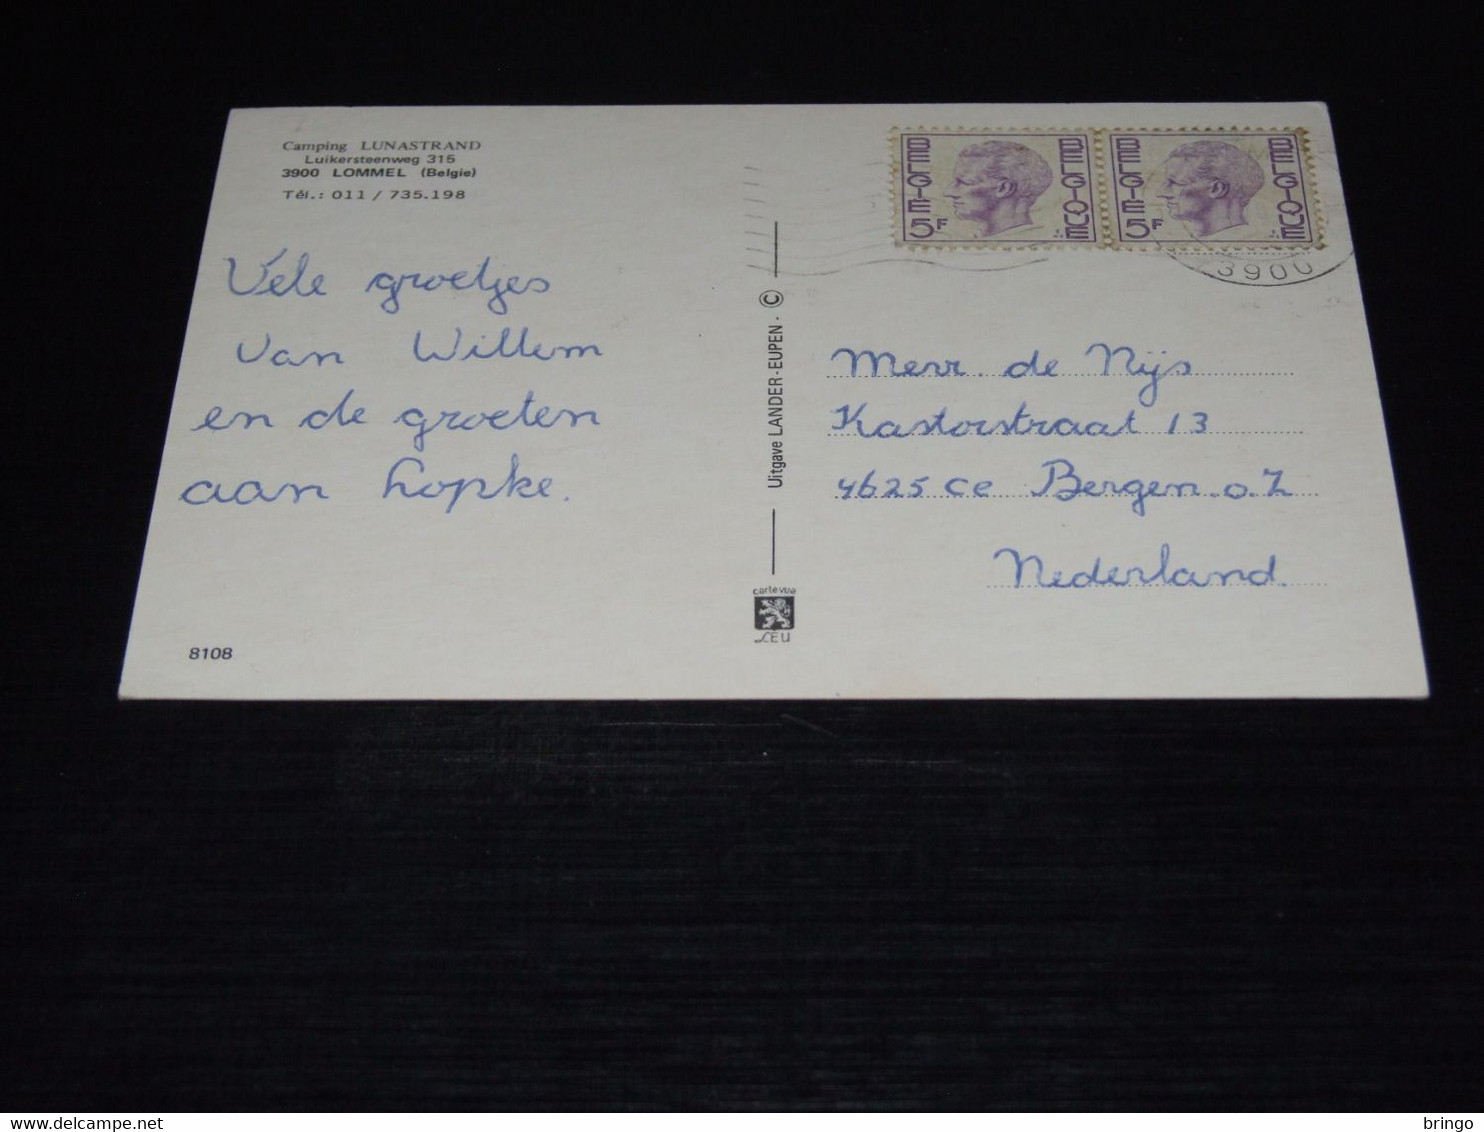 Camping LUNASTRAND
Luikersteenweg 315
3900 LOMMEL (Belgie)
Tél.: 011 / 735.198
Vele groetjes
van Willem
en de groeten
aan hopke.
8108
Uitgave LANDER-EUPEN - ©
carte vue
LEU
BELGIE 5F BELGIQUE
BELGIE 5F BELGIQUE
3900
Mevr. de Nijs
Kastorstraat 13
4625 ce Bergen o.Z
Nederland.
bringo